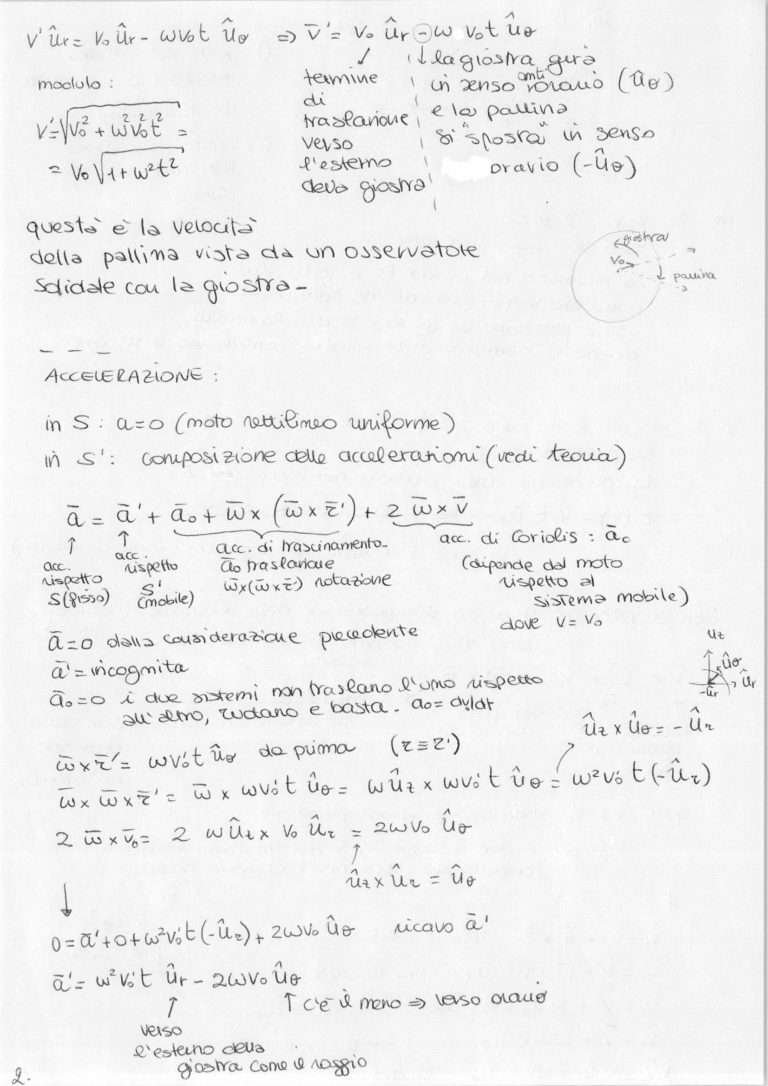 v' ûr = v₀ ûr - ωv₀t ûθ ⇒ v̄' = v₀ ûr - ω v₀t ûθ
modulo:
v' = √(v₀² + ω²v₀²t²) =
= v₀ √(1 + ω²t²)
termine
di
traslazione
verso
l'esterno
della giostra
la giostra gira
in senso antiorario (ûθ)
e la pallina
si "sposta" in senso
orario (-ûθ)
questa è la velocità
della pallina vista da un osservatore
solidale con la giostra -
giostra
v₀
pallina
- - -
ACCELERAZIONE:
in S: a=0 (moto rettilineo uniforme)
in S': composizione delle accelerazioni (vedi teoria)
ā = ā' + ā₀ + ω̄ x (ω̄ x r̄') + 2 ω̄ x v̄
acc.
rispetto
S (fisso)
acc.
rispetto
S'
(mobile)
acc. di trascinamento.
ā₀ traslazione
ω̄x(ω̄xr̄') rotazione
acc. di Coriolis: āc
(dipende dal moto
rispetto al
sistema mobile)
dove v = v₀
ā=0 dalla considerazione precedente
ā' = incognita
ā₀=0 i due sistemi non traslano l'uno rispetto
all'altro, ruotano e basta. a₀= dv/dt
uz
ûθ
-ûr
ûr
ω̄ x r̄' = ωv₀'t ûθ da prima (r ≡ r')
ûz x ûθ = - ûr
ω̄ x ω̄ x r̄' = ω̄ x ωv₀'t ûθ = ω ûz x ωv₀'t ûθ = ω²v₀'t (-ûr)
2 ω̄ x v̄₀ = 2 ω ûz x v₀ ûr = 2ωv₀ ûθ
ûz x ûr = ûθ
0 = ā' + 0 + ω²v₀'t (-ûr) + 2ωv₀ ûθ ricavo ā'
ā' = ω²v₀'t ûr - 2ωv₀ ûθ
c'è il meno ⇒ verso orario
verso
l'esterno della
giostra come il raggio
2.